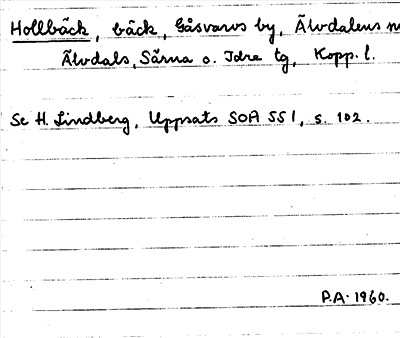 Hollbäck, bäck, Gåsvarvs by, Älvdalens
Älvdals, Särna o. Idre tg, Kopp. l.
Se H. Lindberg, Uppsats SOA 551, s. 102.
P.A. 1960.